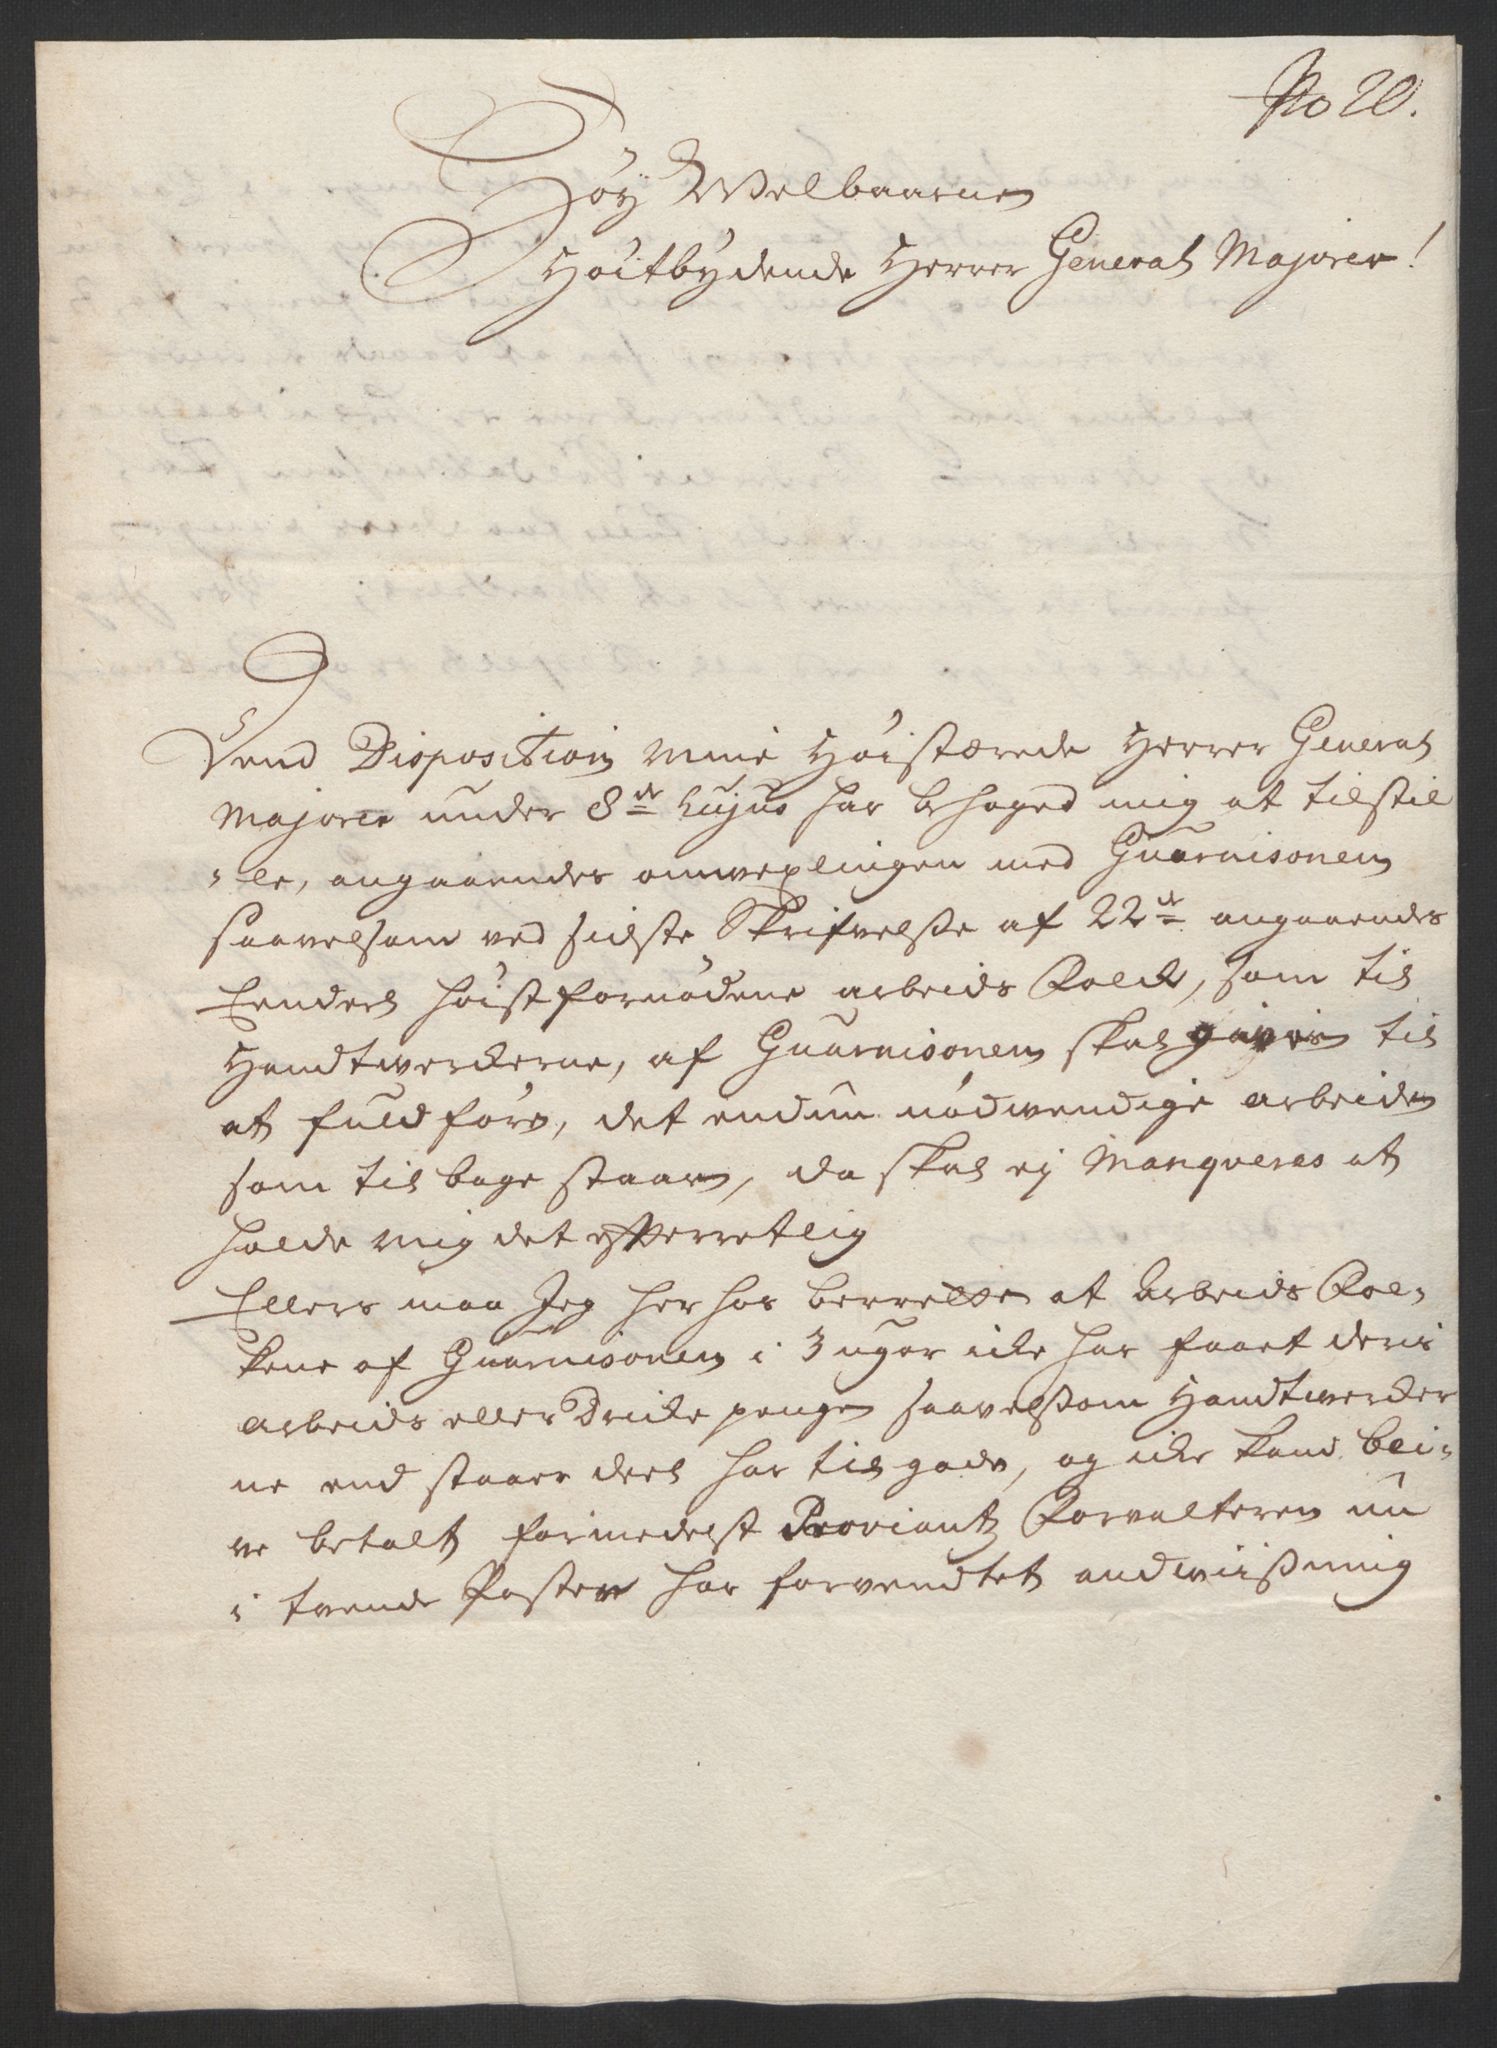 No 20.
Høy Welbaarne
Høitbydende Herrer General Majorer!
Dend Disposition Mine Høistærede Herrer General
Majorer under 8de hujus har behaged mig at tilstil
le, angaaendes omvexlingen med Guarnisonen
saavelsom ved sidste Skrifvelsse af 22de angaaendes
høistfornødene arbeids Folck, som til
Handtwerckerne, af Guarnisonen skal gives til
at fuldføre, det endnu nødwendige arbeide
som tilbage staar, da skal ej Manqveres at
holde mig det efterretlig
Ellers maa Jeg herhos berrette at Arbeids Fol-
kene af Guarnisonen i 3 uger icke har faaet deris
arbeids eller Dricke penge saavelsom Handtwercker
ne end staaer deel har tilgode, og icke kand bli-
ve betalt formedelst Proviant Forvalteren nu
i tvende Poster har forvendtet andwiisning